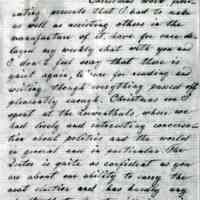 Christmas work pre-
eating presents that I had to make
as well as assisting others in the
manufacture of it, have for once de-
layed my weekly chat with you and
I don't feel sorry that there is
quiet again, & time for reading and
writing though everything passed off
pleasantly enough. Christmas eve I
spent at the Lowenthals, where we
had lively and interesting conversa-
tion about politics and the world
in general and in particular. The
Doctor is quite as confident as you
are about our ability to carry the
next election and has hardly any